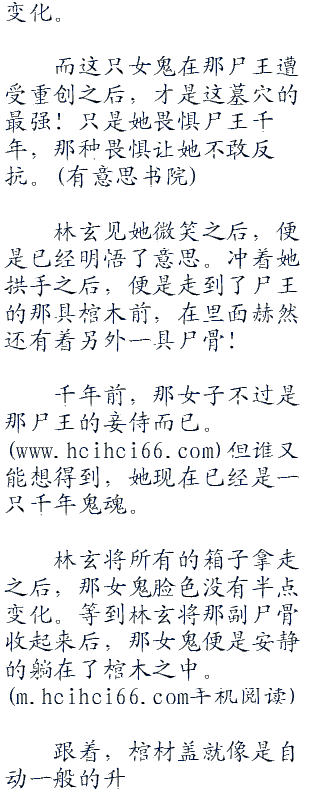 变化。
而这只女鬼在那尸王遭
受重创之后，才是这墓穴的
最强！只是她畏惧尸王千
年，那种畏惧让她不敢反
抗。(有意思书院)
林玄见她微笑之后，便
是已经明悟了意思。冲着她
拱手之后，便是走到了尸王
的那具棺木前，在里面赫然
还有着另外一具尸骨！
千年前，那女子不过是
那尸王的妾侍而已。
(www.hcihci66.com)但谁又
能想得到，她现在已经是一
只千年鬼魂。
林玄将所有的箱子拿走
之后，那女鬼脸色没有半点
变化。等到林玄将那副尸骨
收起来后，那女鬼便是安静
的躺在了棺木之中。
(m.hcihci66.com手机阅读)
跟着，棺材盖就像是自
动一般的升